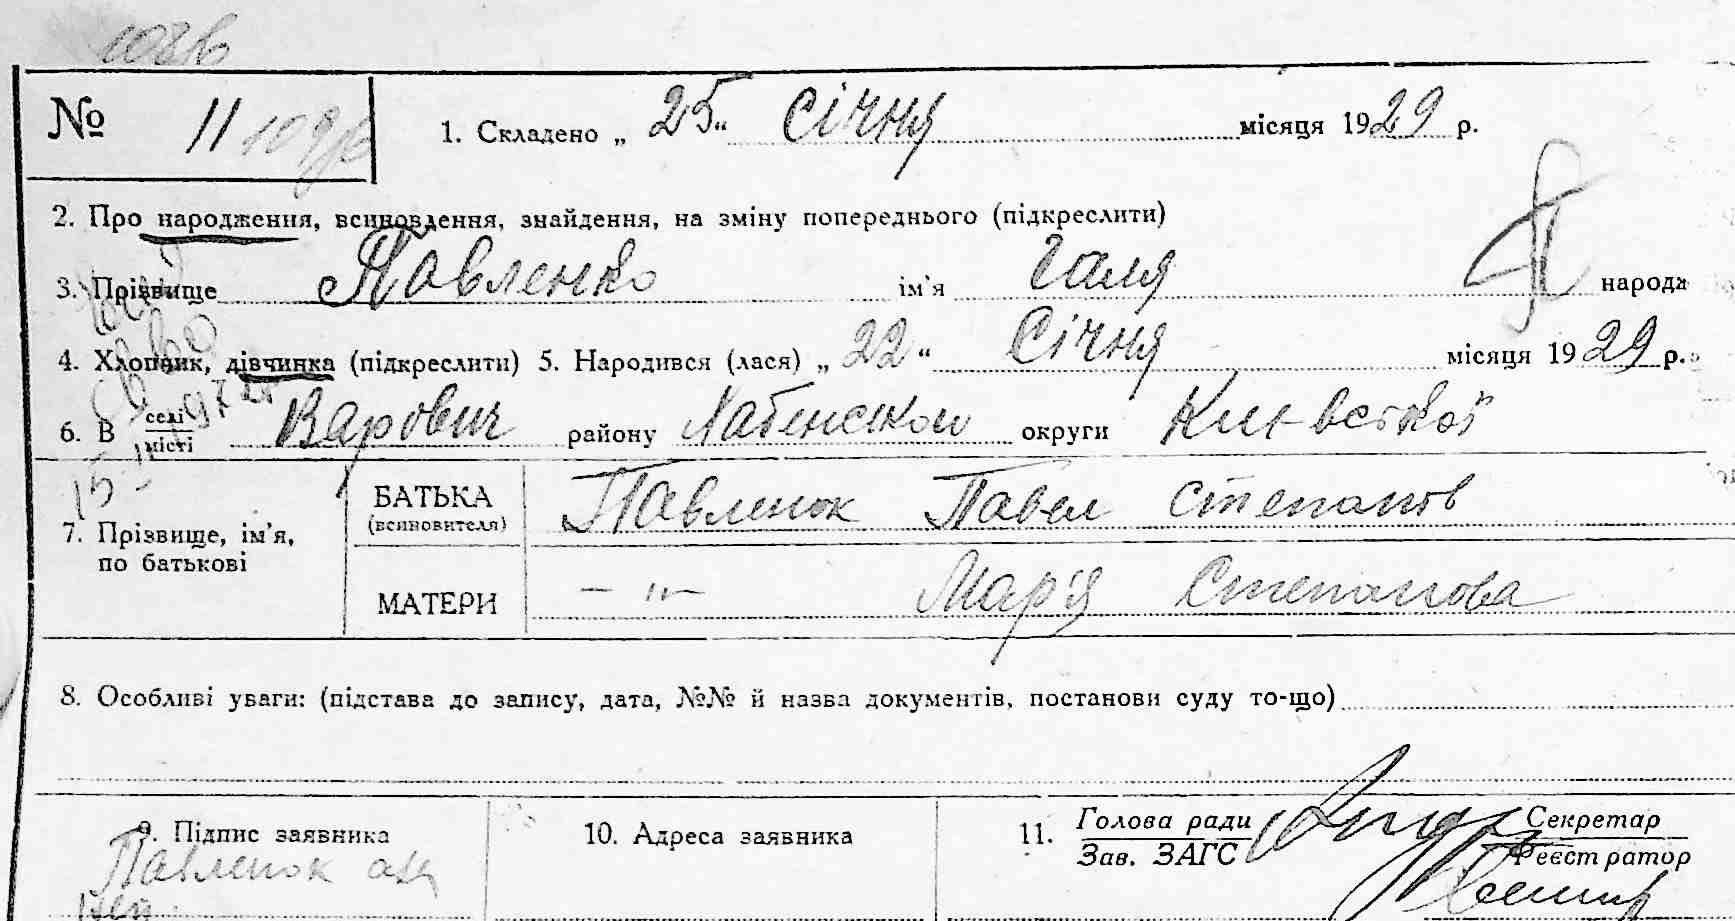 № 11 1. Складено „25" січня місяця 1929 р.
2. Про народження, всиновлення, знайдення, на зміну попереднього (підкреслити)
3. Прізвище Павленко ім'я Галя народи
4. Хлопчик, дівчинка (підкреслити) 5. Народився (лася) „22" Січня місяця 1929 р.
6. В селі місті Варович району округи
7. Прізвище, ім'я, по батькові
БАТЬКА (всиновителя) Павленок Павел Степанов
МАТЕРИ — " — Мар'я Степанова
8. Особливі уваги: (підстава до запису, дата, №№ й назва документів, постанови суду то-що)
9. Підпис заявника 10. Адреса заявника 11. Голова ради Секретар
Зав. ЗАГС Реєстратор
Павленок